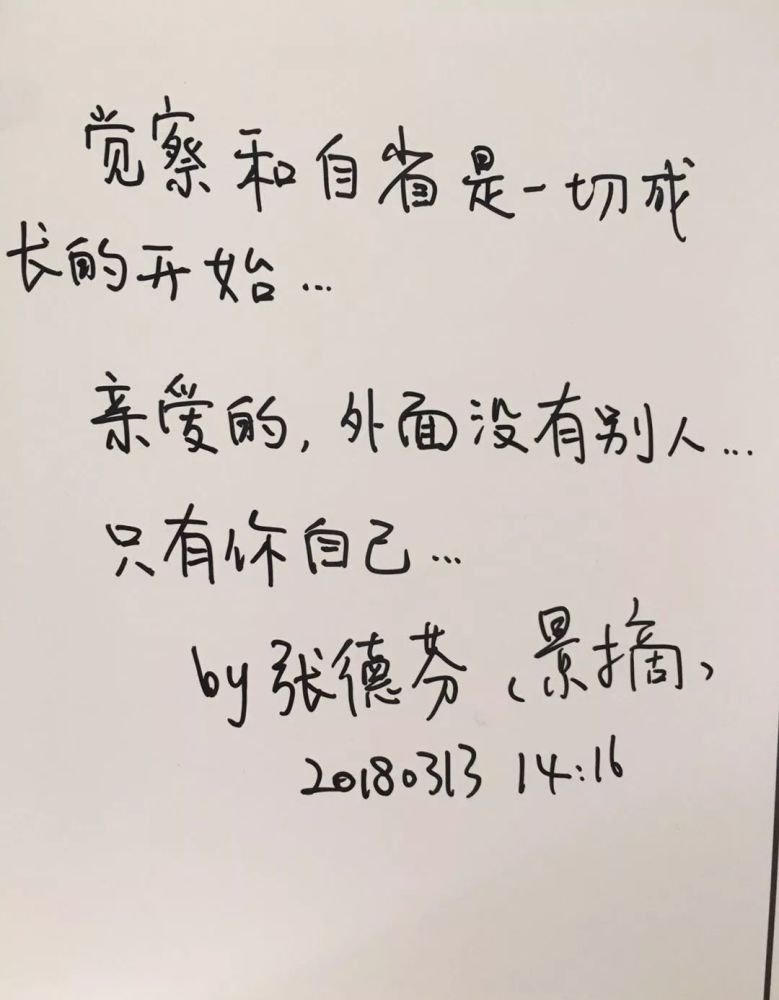 觉察和自省是一切成
长的开始...
亲爱的,外面没有别人...
只有你自己...
by 张德芬(景摘)
20180313 14:16